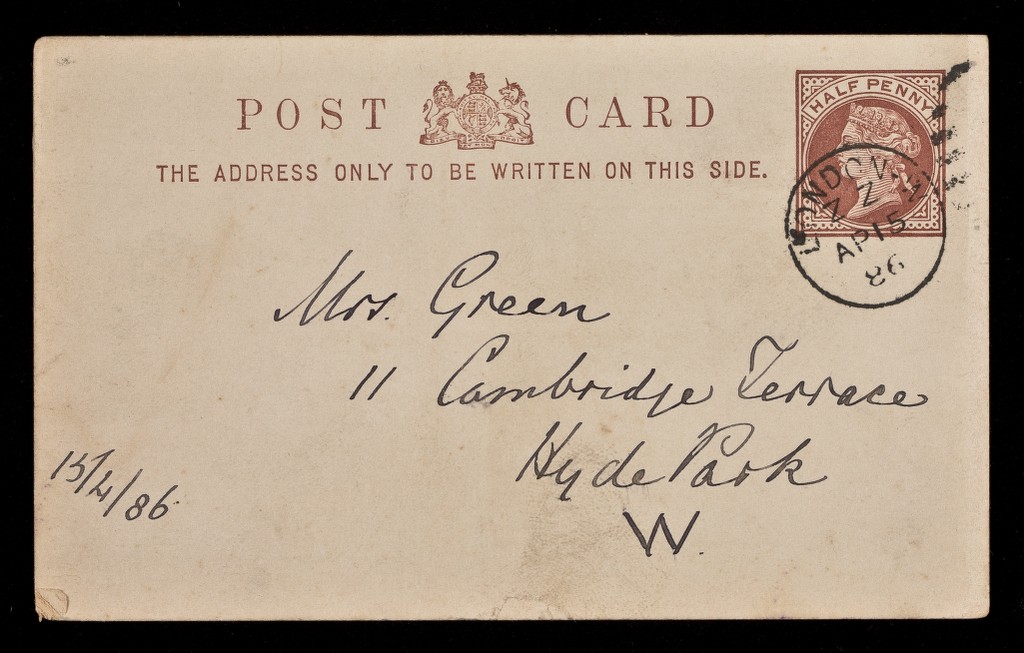 POST CARD
THE ADDRESS ONLY TO BE WRITTEN ON THIS SIDE.
HALF PENNY
LONDON. W
Z Z
AP 15
86
Mrs. Green
11 Cambridge Terrace
Hyde Park
W.
15/4/86